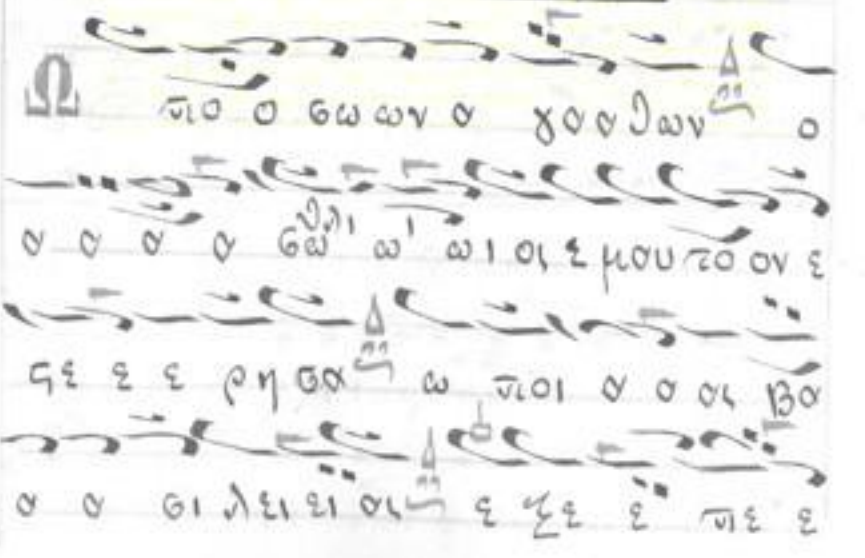 Ω πο ο σω ων α γα α θων ο
α α α α σω ω ι ος ε μαυ το ον ε
ϛε ε ε ρη σα ω ποι α α ας βα
α α σι λει ει ας ε ξε ε πε ε